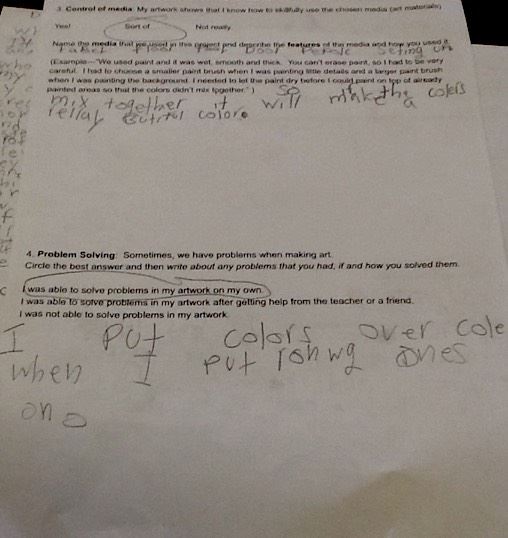 3. Control of media: My artwork shows that I know how to skillfully use the chosen media (art materials)
Yes! Sort of Not really
Name the media that we used in this project and describe the features of the media and how you used it.
(Example---"We used paint and it was wet, smooth and thick. You can't erase paint, so I had to be very
careful. I had to choose a smaller paint brush when I was painting little details and a larger paint brush
when I was painting the background. I needed to let the paint dry before I could paint on top of already
painted areas so that the colors didn't mix together.")
so
mix together it will make the colers
a
colore
4. Problem Solving: Sometimes, we have problems when making art.
Circle the best answer and then write about any problems that you had, if and how you solved them.
I was able to solve problems in my artwork on my own.
I was able to solve problems in my artwork after getting help from the teacher or a friend.
I was not able to solve problems in my artwork.
I put colors over cole
when I put rohwg ones
ono